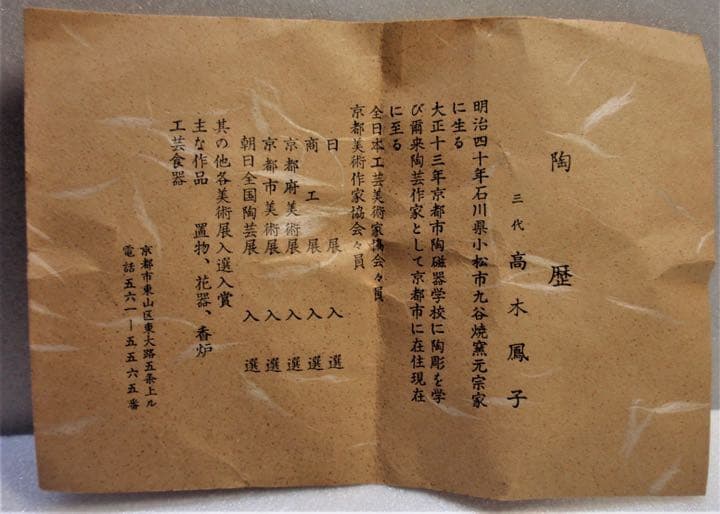 陶歴
三代 高木鳳子
明治四十年石川県小松市九谷焼窯元宗家
に生る
大正十三年京都市陶磁器学校に陶彫を学
び爾来陶芸作家として京都市に在住現在
に至る
全日本工芸美術家協会々員
京都美術作家協会々員
日展 入選
商工展 入選
京都府美術展 入選
京都市美術展 入選
朝日全国陶芸展 入選
其の他各美術展入選入賞
主な作品 置物、花器、香炉
工芸食器
京都市東山区東大路五条上ル
電話五六一―五五六五番